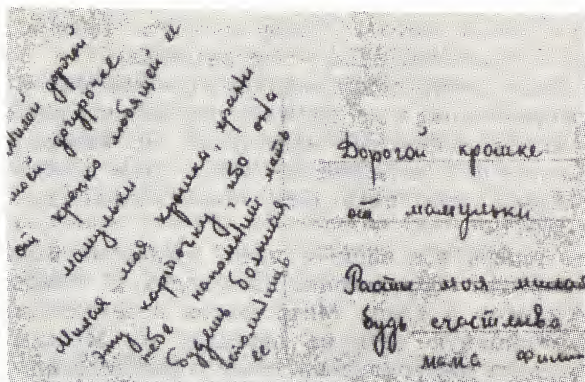 Милой дорогой
моей дочурочке
от крепко любящей ее
мамульки
Милая моя крошка, храни
эту карточку, ибо она
тебе напомнит мать
будешь большая
вспомнишь
ее
Дорогой крошке
от мамульки
Расти моя милая
будь счастлива
мама